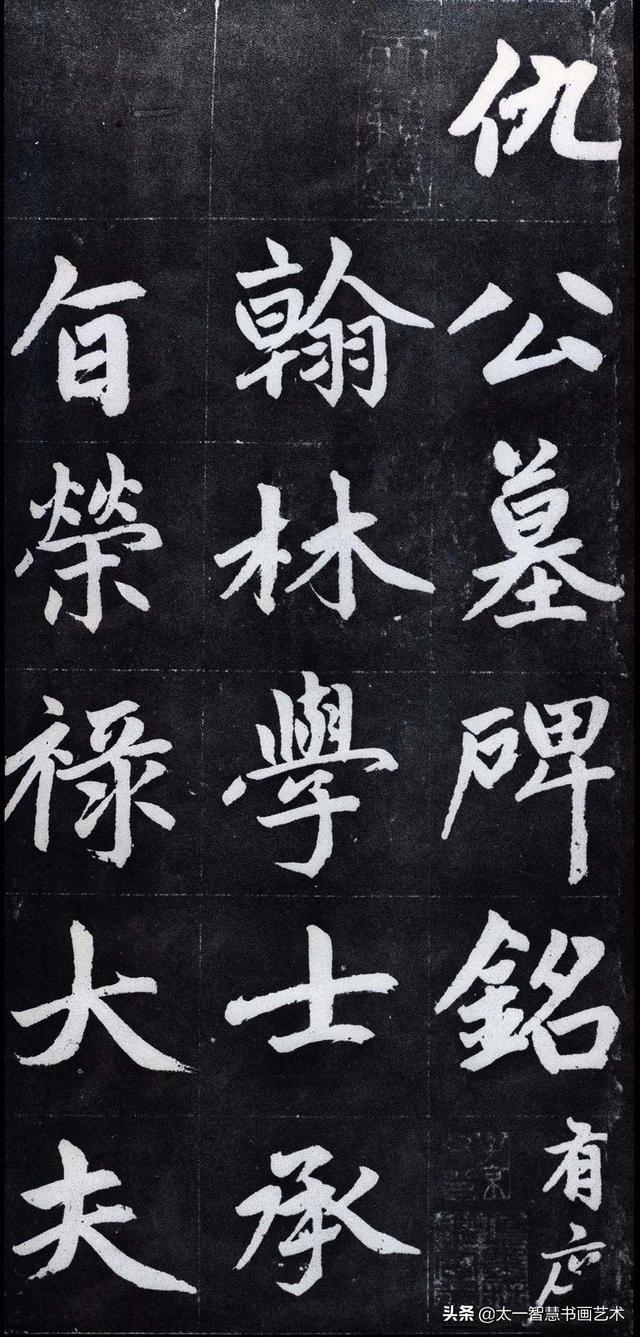 仇公墓碑銘有序
翰林學士承
旨榮祿大夫
头条 @太一智慧书画艺术